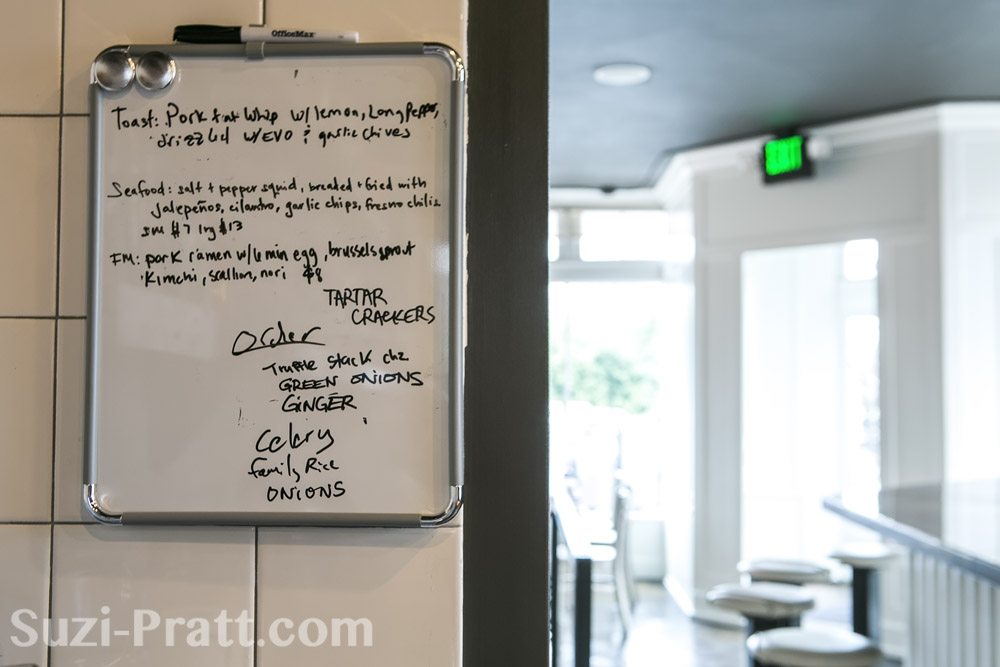 OfficeMax
Toast: Pork fat Whip w/lemon, Long Pepper,
drizzled w/EVO & garlic chives
Seafood: salt + pepper squid, breaded + fried with
Jalepeños, cilantro, garlic chips, fresno chilis
sm $7 lrg $13
FM: pork ramen w/6 min egg, brussels sprout
Kimchi, scallion, nori $8
TARTAR
CRACKERS
Order
Truffle Stack chz
GREEN ONIONS
GINGER
Celery
Family Rice
ONIONS
EXIT
Suzi-Pratt.com